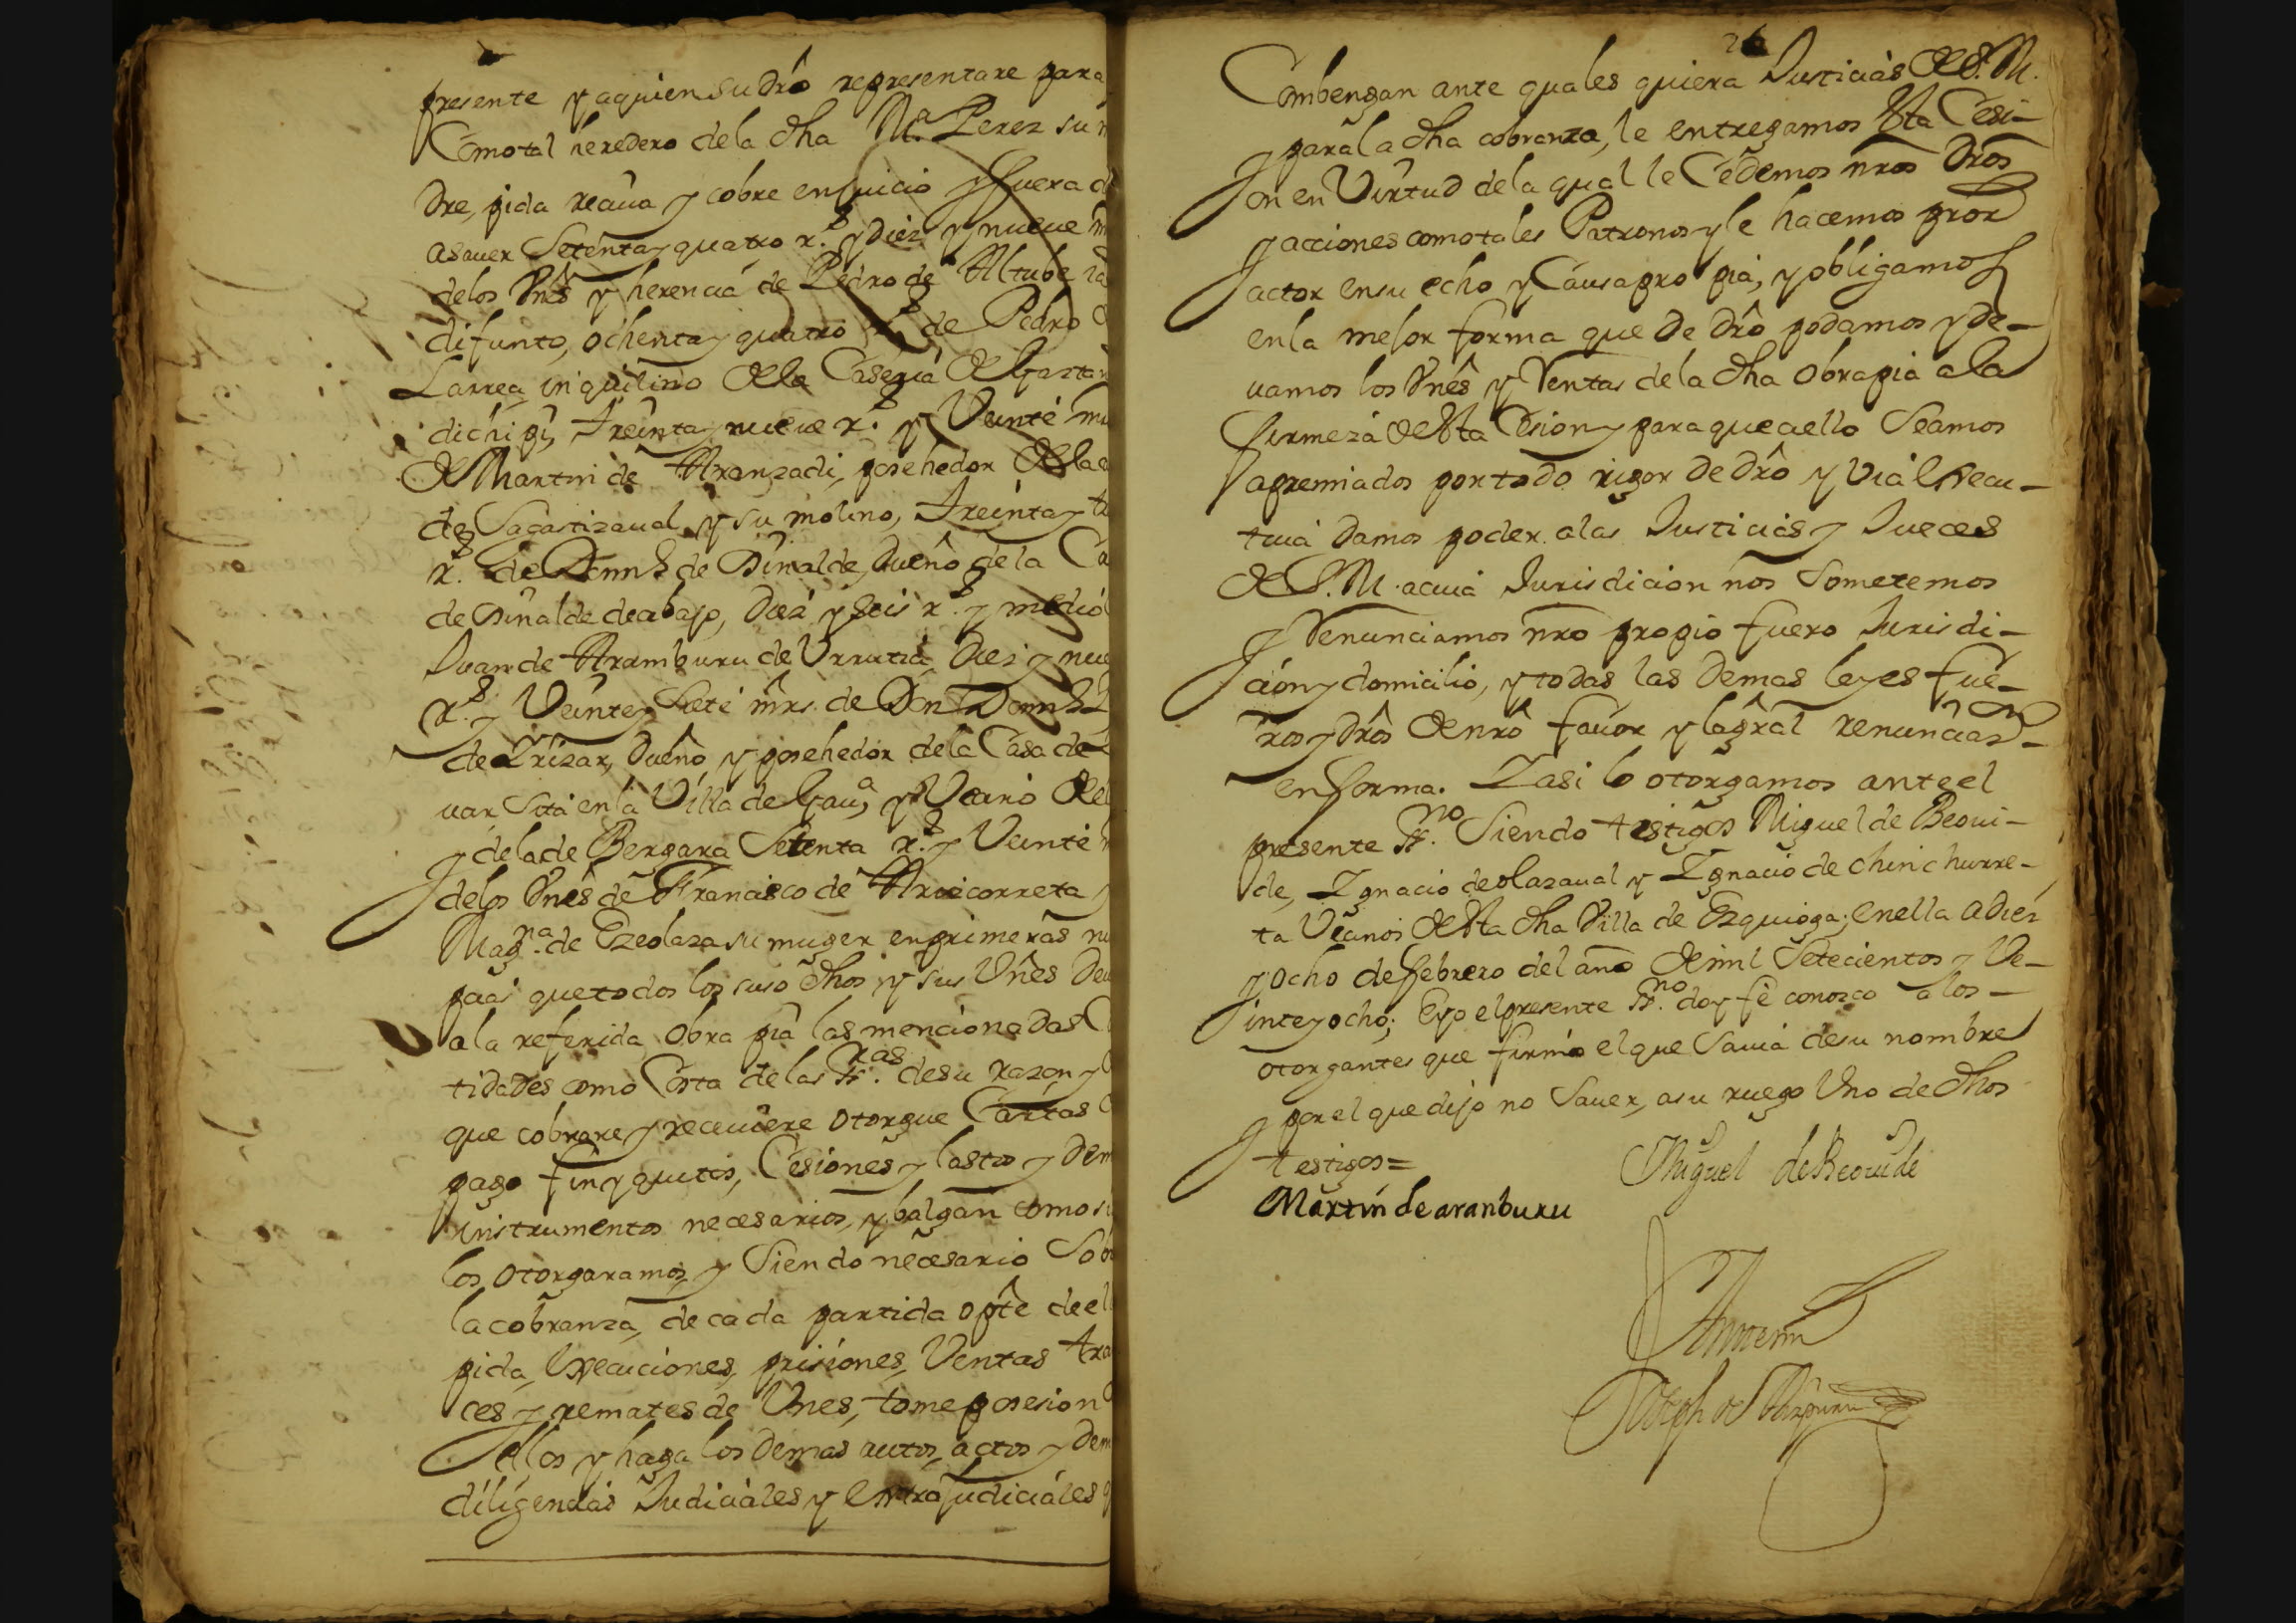 presente y aquien su dro representare para
Como tal heredero dela dha Ma. Perez su m
dre, pida reciua y cobre en juicio y fuera d
asauer Setenta y quatro rs. y diez y nueue m
delos Vnes y herencia de Pedro de Altube ia
difunto, ochenta y quatro rs. de Pedro d
Larrea inquilino dela Caseria de Gazta
dichipi, treinta y nueue rs. y Veinte m
de Martin de Aranzadi, posehedor dela
de Sagastizaual y su molino, treinta y t
rs. de Domin.o de Vinalde, dueño de la Ca
de Vinalde de abajo, diez y seis rs. y medio
Juan de Aramburu de Vrrutia, Diez y nue
rs. y Veinte y Siete mrs. de Don Domin.o
de Yrizar, dueño y posehedor dela Casa de
uar Sita en la Villa de Gaua, y Vecino de
y dela de Bergara Setenta rs. y Veinte m
delos Vnes de Francisco de Arricorreta y
Magna. de Ezeolaza su muger en primeras nu
pcias que todos los suso dhos y sus Vnes deu
ala referida Obra pia las mencionadas C
tidades como Costa delas ssras. de su razon y
que cobrare y reciuiere otorgue Cartas
pago finyquitos, Cesiones y lastos y dem
instrumentos necesarios, y balgan como si
los otorgaramos, y Siendo necesario Sob
la cobranza, de cada partida o pte de el
pida, Execuciones, prisiones, Ventas tra
ces y remates de Vnes, tome posesion
dellos y haga los demas autos, actos y dem
diligencias Judiciales y Extrajudiciales q
26
Combengan ante quales quiera Justicias de S. M.
y para la dha cobranza, le entregamos esta Cesi-
on en Virtud dela qual le Cedemos nros dros
y acciones como tales Patronos y le hacemos pror
actor en su echo y Causa propia, y obligamos
en la mejor forma que de dro podamos y de-
uamos los Vnes y Rentas dela dha Obra pia ala
firmeza de esta Cesion y para que aello Seamos
apremiados por todo rigor de dro y via Execu-
tiua damos poder alas Justicias y Jueces
de S. M. acuia Jurisdicion nos Sometemos
y Renunciamos nro propio fuero Jurisdi-
cion y domicilio, y todas las demas leyes fue-
ros y dros de nro fauor y la gral renunciaon
en forma. Y asi lo otorgamos ante el
presente ssno. Siendo testigos Miguel de Beoui-
de, Ygnacio de olazaual y Ygnacio de chinchurre-
ta Vecinos de esta dha Villa de Ezquioga; en ella a diez
y ocho de febrero del año de mil Setecientos y Ve-
inte y ocho; E yo el presente ssno. doy fe conozco a los
otorgantes que firmo el que Sauia de su nombre
y por el que dijo no Sauer, a su ruego Vno de dhos
testigos =
Miguel de Beouide
Martin de aranburu
Ante mi
Joseph de Aizpuru